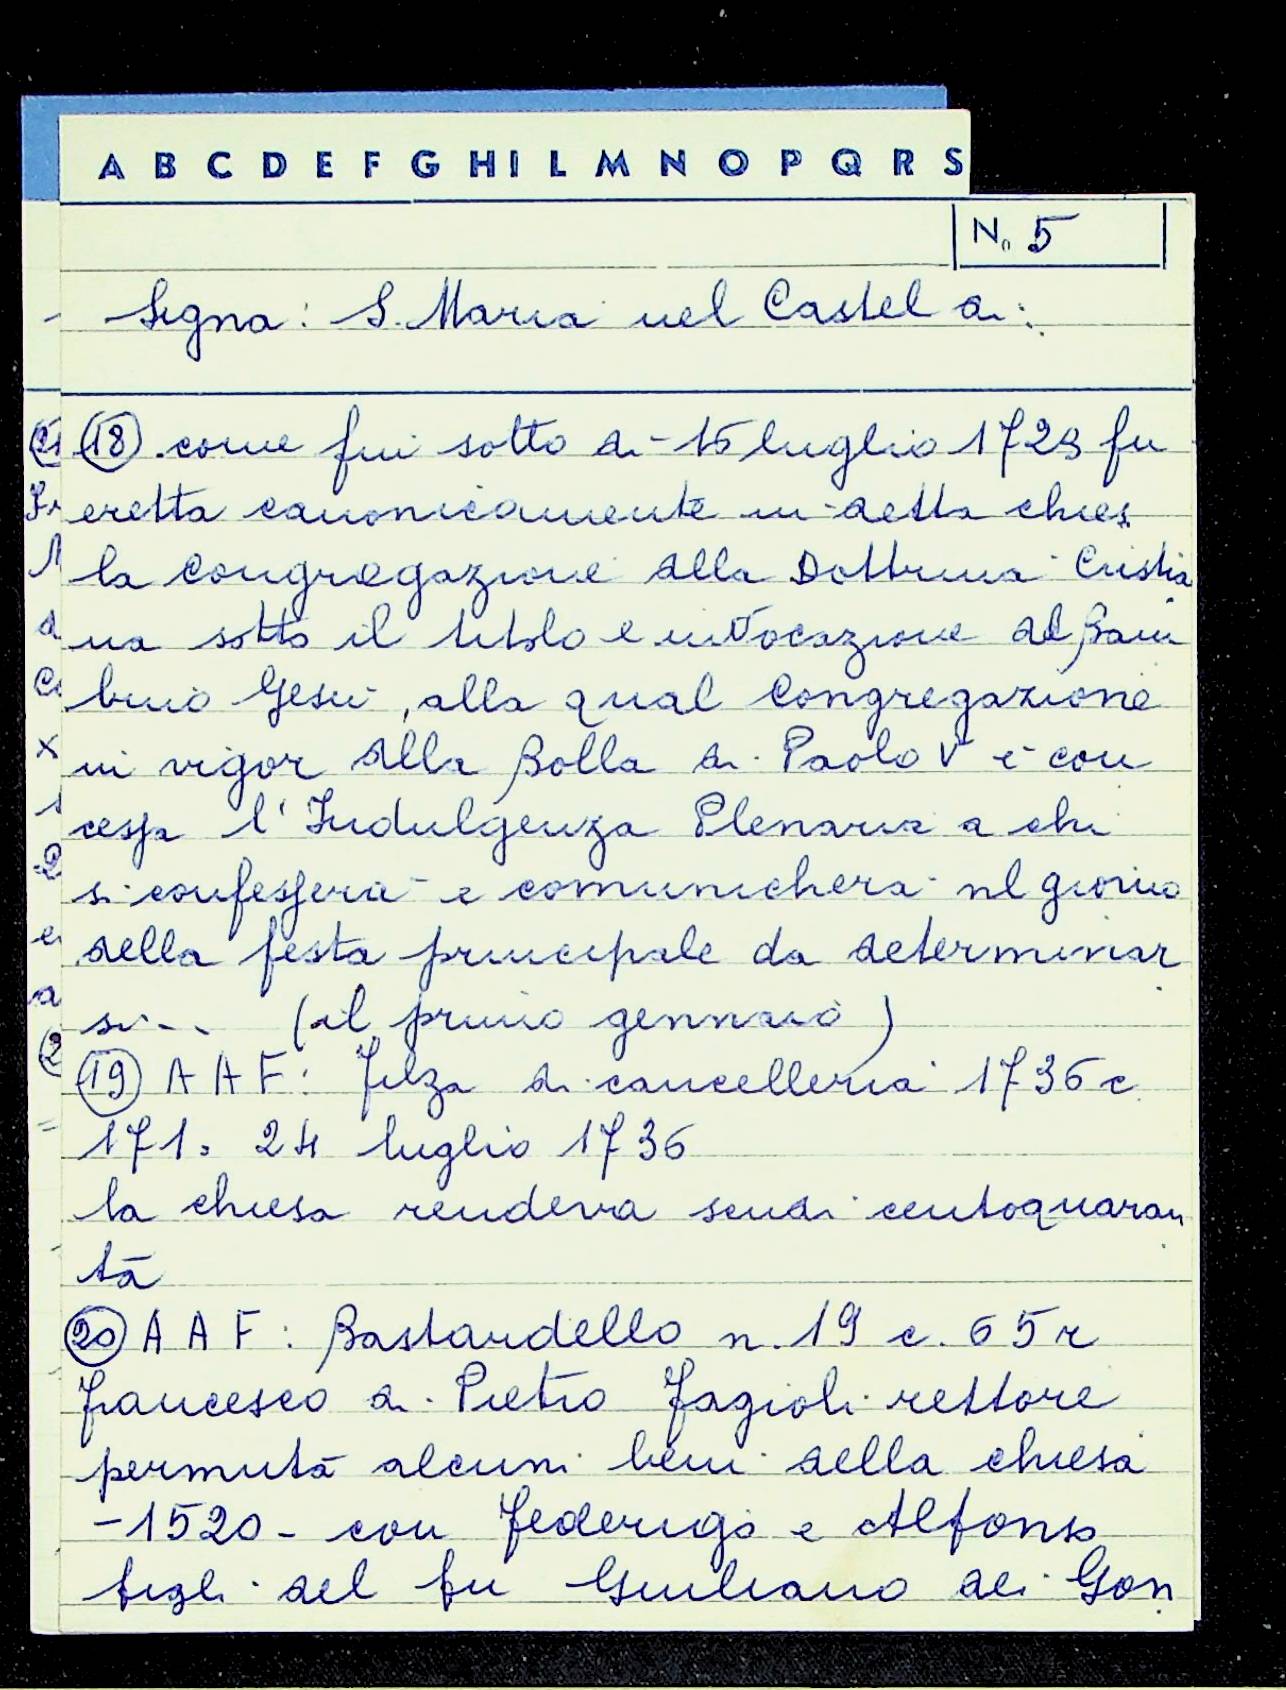 A B C D E F G H I L M N O P Q R S
N. 5
Segna: S. Maria nel Castel di:
(18) .come fui sotto di - 15 luglio 1723 fu
eretta canonicamente in detta chies
la Congregazione della Dottrina Cristia
na sotto il titolo e invocazione del Bam
bino Gesù, alla qual Congregazione
in vigor della Bolla di Paolo V è con
cessa l'Indulgenza Plenaria a chi
si confesserà e comunicherà nel giorno
della festa principale da determinar
si... (il primo gennaio)
(19) A A F: Filza di cancelleria 1736 c
171. 24 luglio 1736
la chiesa rendeva scudi centoquaran
ta
(20) A A F: Bastardello n. 19 c. 65 r
Francesco di Pietro Fagioli rettore
permutà alcuni beni della chiesa
-1520- con Federigo e Alfonso
figli del fu Giuliano dei Gon